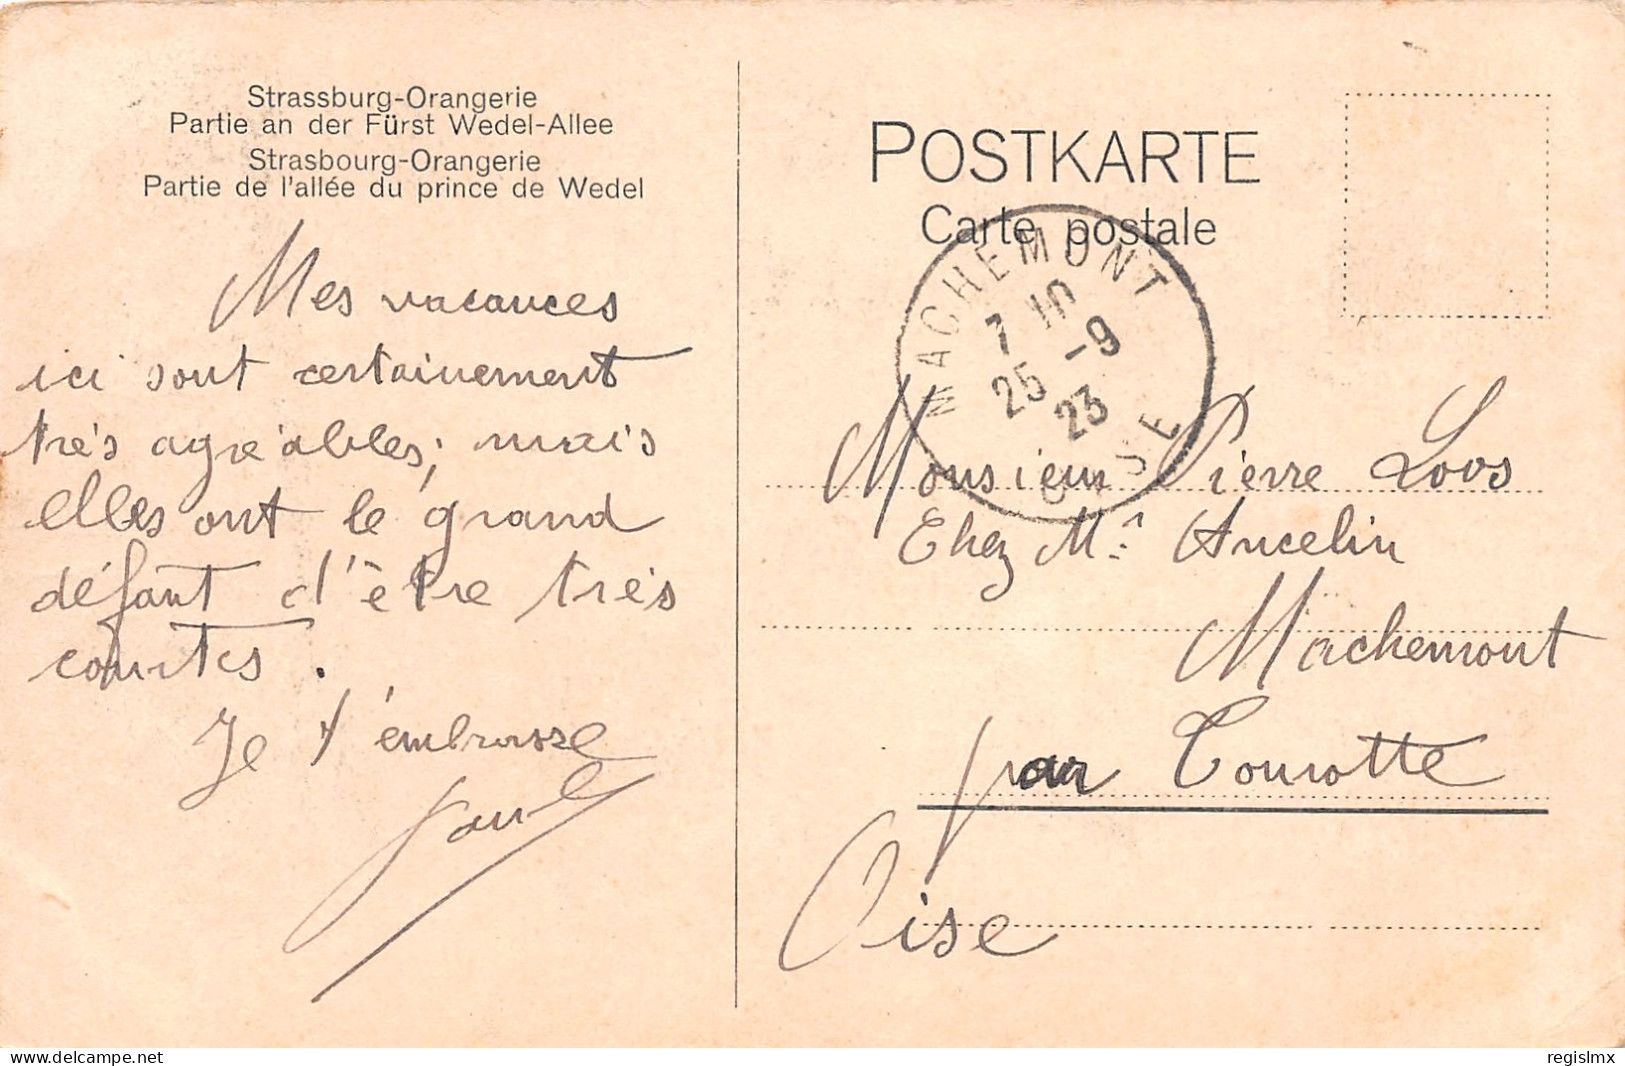 Strassburg-Orangerie
Partie an der Fürst Wedel-Allee
Strasbourg-Orangerie
Partie de l'allée du prince de Wedel
Mes vacances
ici sont certainement
très agréables; mais
elles ont le grand
défaut d'être très
courtes.
Je t'embrasse
Paul
POSTKARTE
Carte postale
MACHEMONT
7 10
25 -9
23
OISE
Monsieur Pierre Loos
Chez Mr Ancelin
Machemont
par Tourotte
Oise
delcampe.net
regislmx